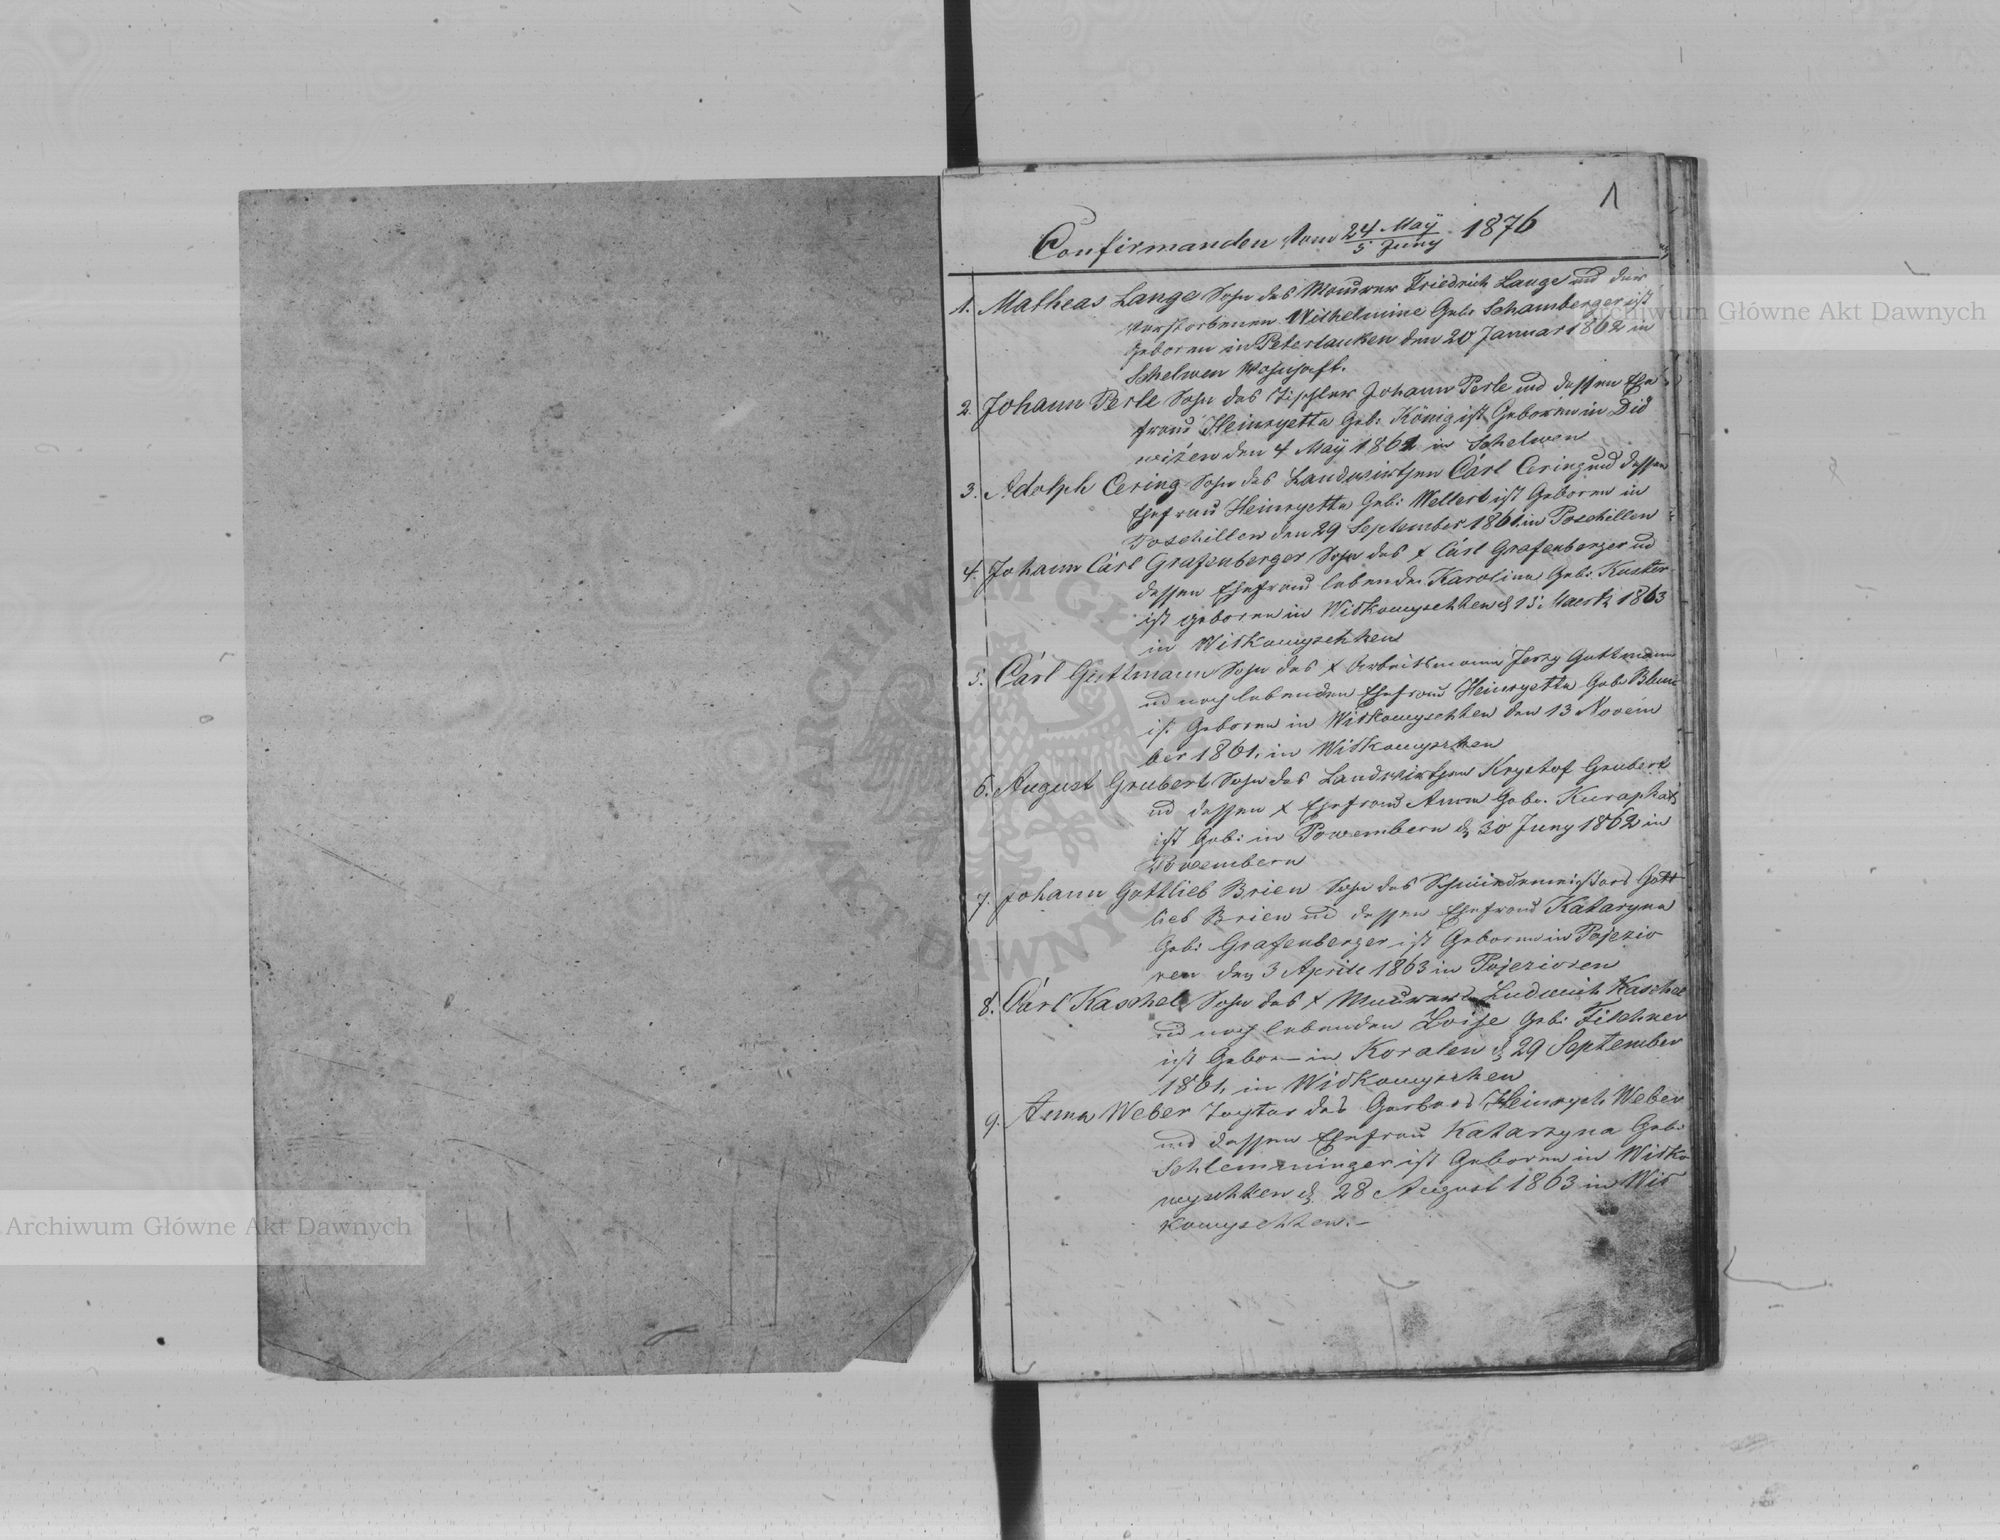 1
Confirmanden vom 24 Maÿ / 5 Juny 1876
1. Matheas Lange Sohn des Maurer Friedrich Lange und der
verstorbenen Wilhelmine Geb: Schamberger ist
geboren in Peterlauken den 20 Januar 1862 in
Schelwen Wohnhaft.
2. Johann Perle Sohn des Tischler Johann Perle und dessen Ehe
frau Heinryetta Geb: König ist Geboren in Did
wizen den 4 Maÿ 1862 in Schelwen
3. Adolph Cering Sohn des Landwirthen Carl Cering und dessen
Ehefrau Heinryetta Geb: Wellert ist Geboren in
Poschillen den 29 September 1861 in Poschillen
4. Johann Carl Grafenberger Sohn des + Carl Grafenberger und
dessen Ehefrau lebenden Karolina Geb: Kuster
ist geboren in Witkowyschken d 15 Maertz 1863
in Witkowyschken
5. Carl Guttmann Sohn des + Arbeitsmann Jerzy Guttmann
und noch lebenden Ehefrau Heinryetta Geb: Blum
ist Geboren in Witkowyschken den 13 Novem
ber 1861, in Witkowyschken
6. August Grubert Sohn des Landwirthen Krystof Grubert
und dessen + Ehefrau Anna Geb:
ist Geb: in Powembern d 30 Juny 1862 in
Powembern
7. Johann Gottlieb Brien Sohn des Schmiedemeisters Gott
lieb Brien und dessen Ehefrau Kataryna
Geb: Grafenberger ist Geboren in Pojezio
ren den 3 Aprill 1863 in Pojezioren
8. Carl Kaschel Sohn des + Maurer Ludwich Kaschel
und noch lebenden Loise Geb: Filchner
ist Geboren in Koralen d 29 September
1861, in Witkowyschken
9. Anna Weber Tochter des Gerbers Heinrych Weber
und dessen Ehefrau Katarzyna Geb:
Schlemminger ist Geboren in Witko
wyschken d. 28 August 1863 in Wit
kowyschken.-
Archiwum Główne Akt Dawnych
Archiwum Główne Akt Dawnych
ARCHIWUM GŁÓWNE AKT DAWNYCH